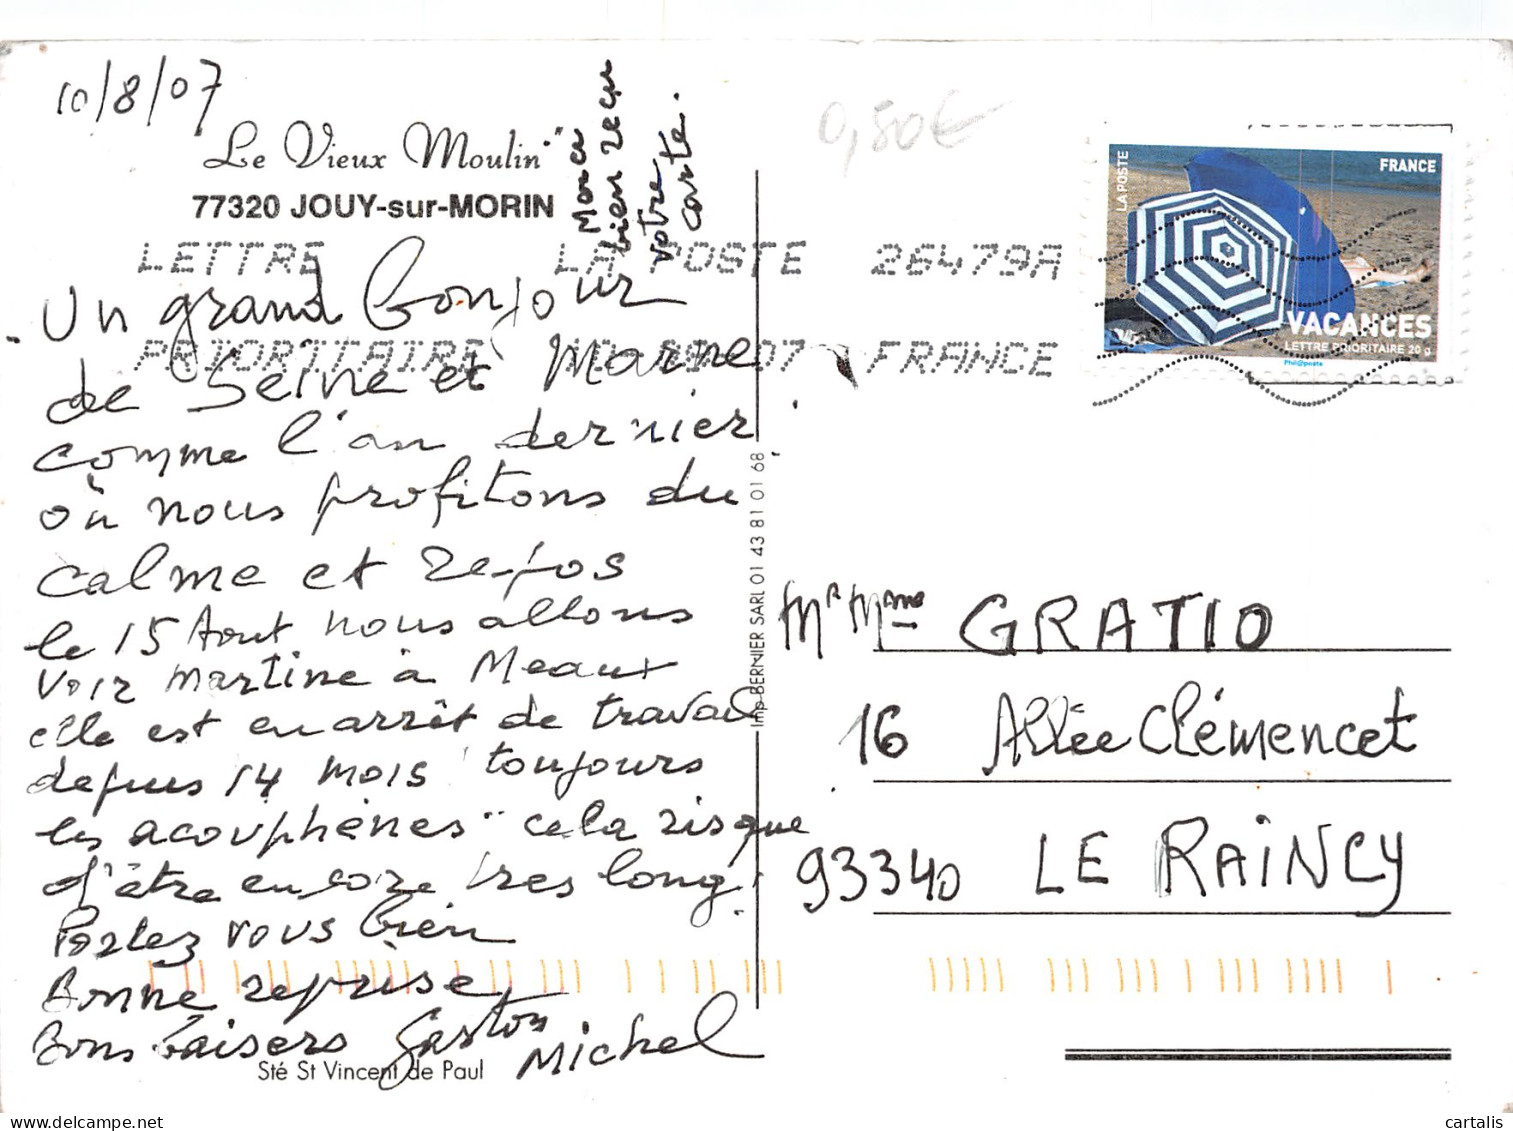 10/8/07
"Le Vieux Moulin"
77320 JOUY-sur-MORIN
Merci
bien reçu
votre
carte.
0,80€
LETTRE LA POSTE 26479A
PRIORITAIRE 07 FRANCE
LA POSTE
FRANCE
VACANCES
LETTRE PRIORITAIRE 20 g
Phil@poste
Un grand bonjour
de Seine et Marne
comme l'an dernier
où nous profitons du
calme et repos
le 15 Aout nous allons
voir Martine à Meaux
elle est en arrêt de travail
depuis 14 mois "toujours
les acouphènes" cela risque
d'être encore tres long.
Portez vous bien
Bonne reprise,
Bons baisers Gaston
Michel
Sté St Vincent de Paul
Imp BERNIER SARL 01 43 81 01 68
Mr Mme GRATIO
16 Allée Clémencet
93340 LE RAINCY
cartalis